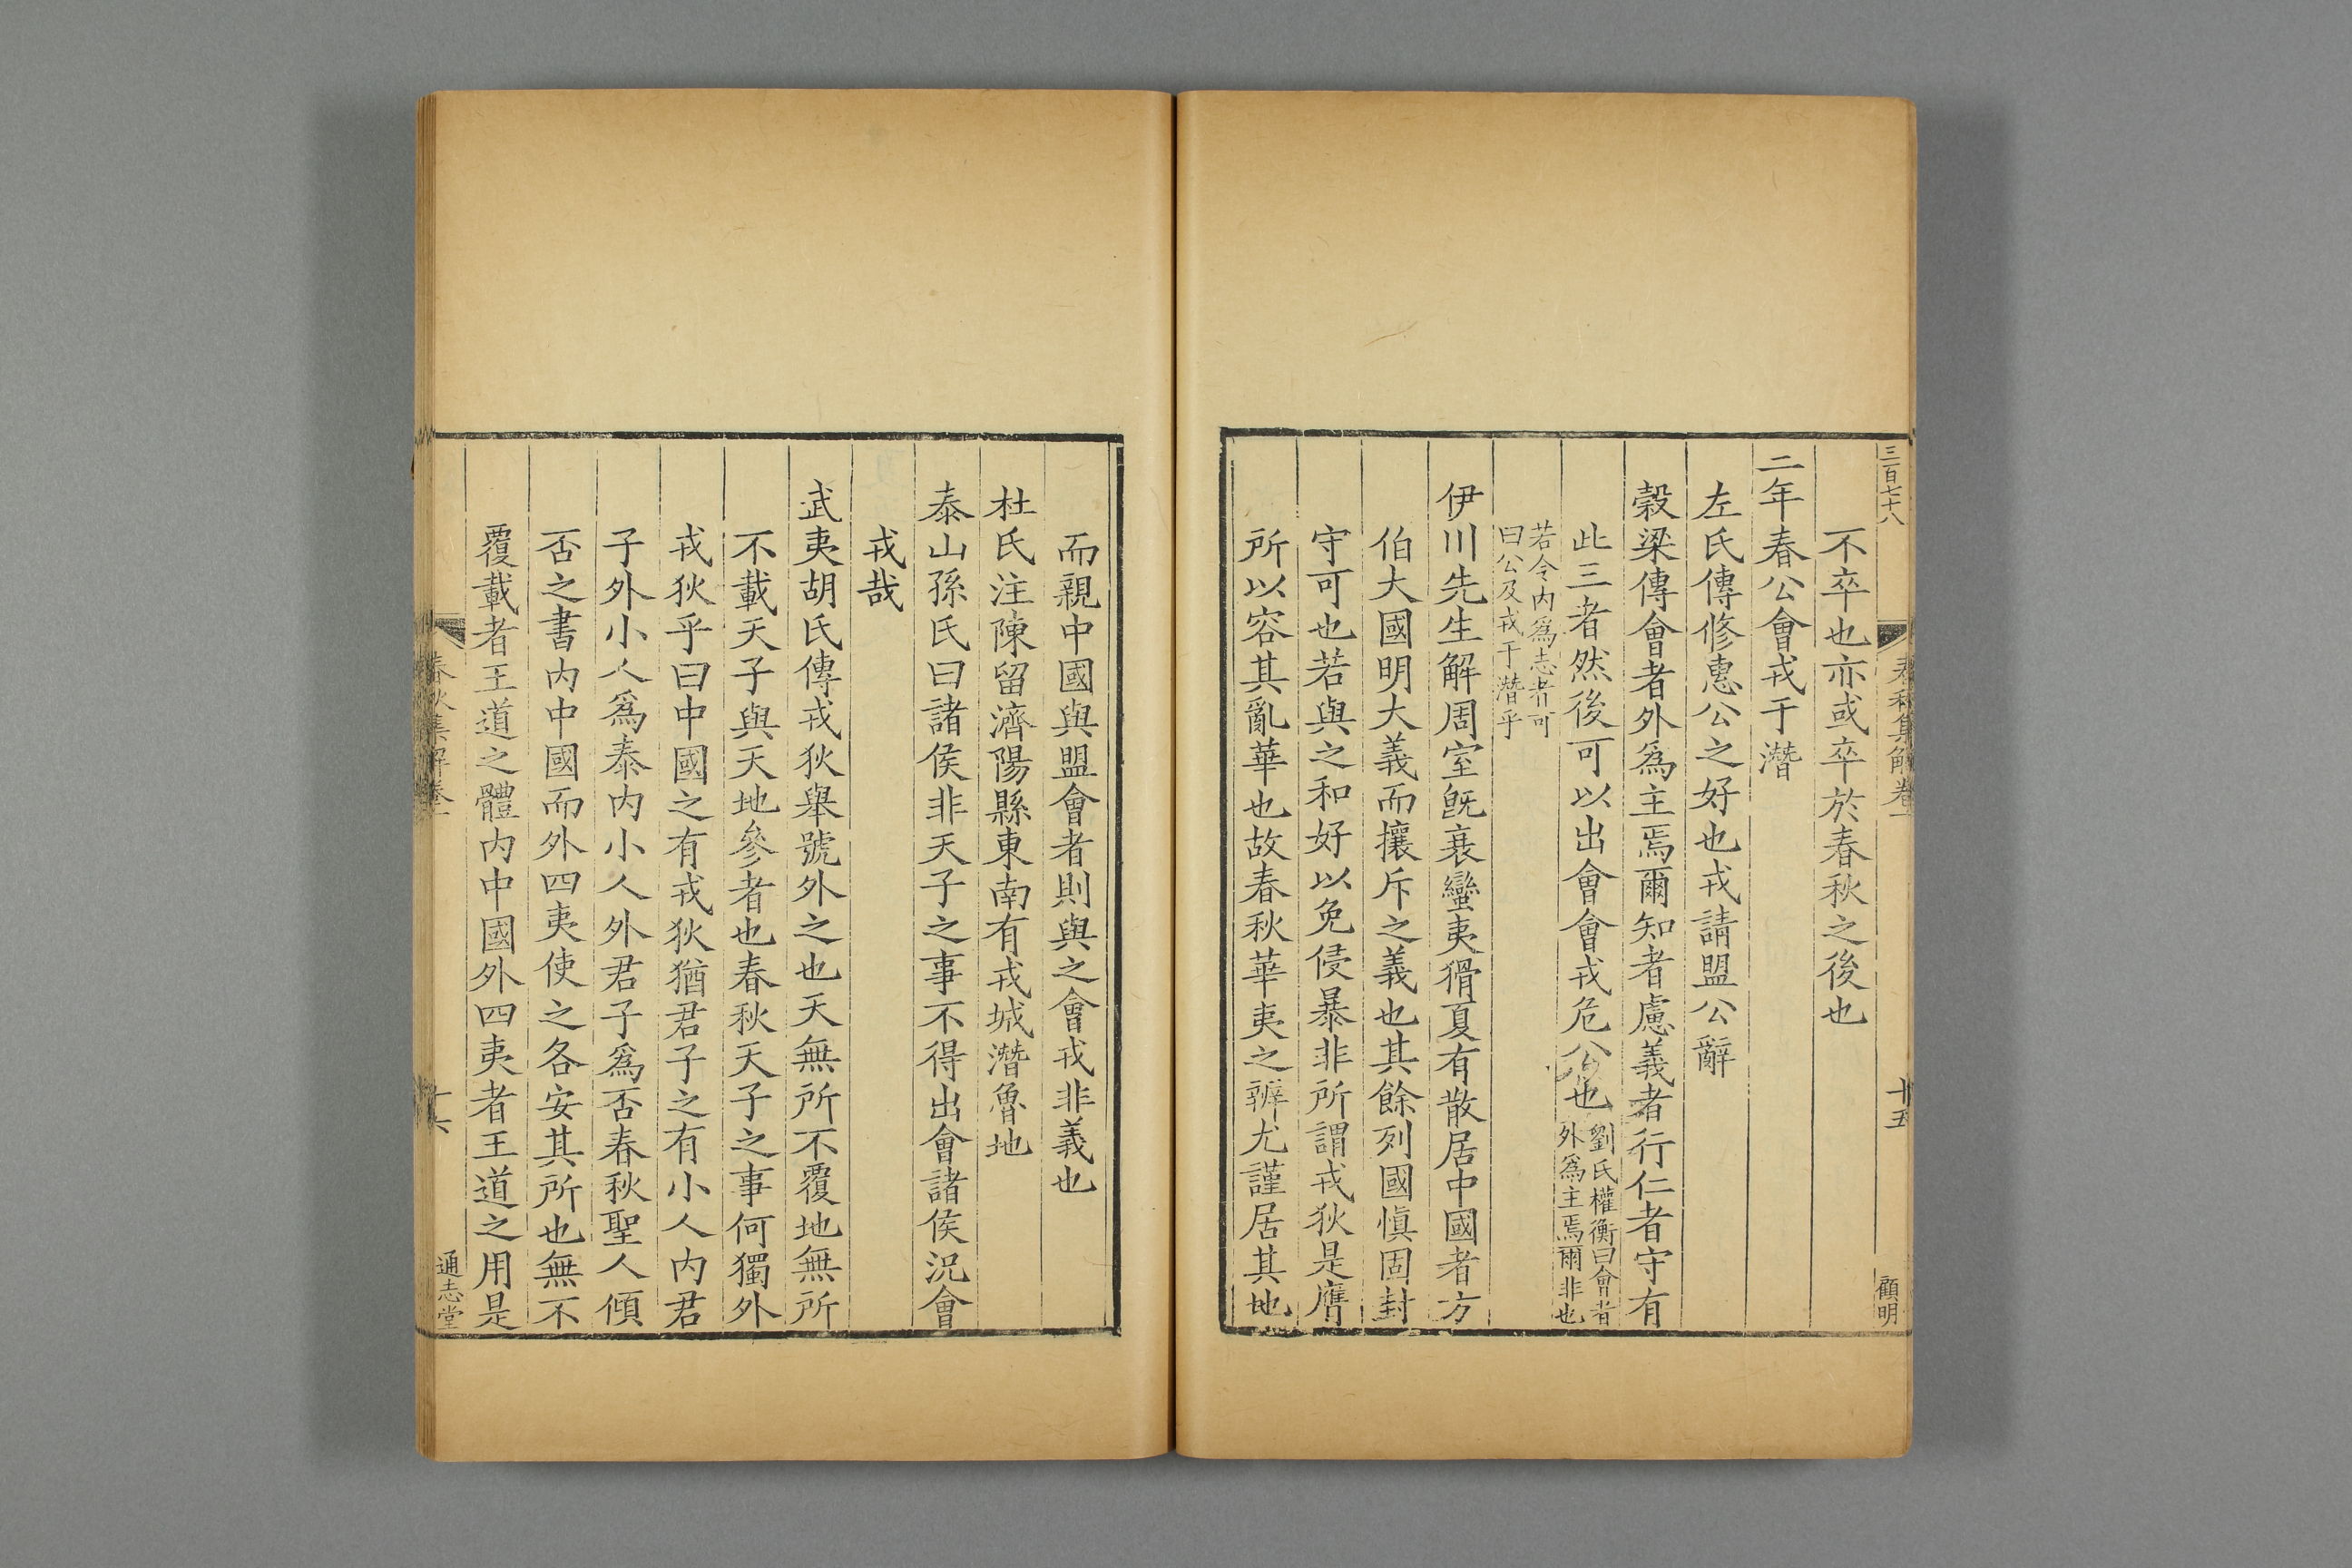 三百七十八
春秋集解卷一
十五
顧明
不卒也亦或卒於春秋之後也
二年春公會戎于潛
左氏傳修惠公之好也戎請盟公辭
穀梁傳會者外爲主焉爾知者慮義者行仁者守有
此三者然後可以出會會戎危公也劉氏權衡曰會者
外爲主焉爾非也
若令内爲志者可
曰公及戎于潛乎
伊川先生解周室旣衰蠻夷猾夏有散居中國者方
伯大國明大義而攘斥之義也其餘列國愼固封
守可也若與之和好以免侵暴非所謂戎狄是膺
所以容其亂華也故春秋華夷之辨尤謹居其地
而親中國與盟會者則與之會戎非義也
杜氏注陳留濟陽縣東南有戎城潛魯地
泰山孫氏曰諸侯非天子之事不得出會諸侯況會
戎哉
武夷胡氏傳戎狄舉號外之也天無所不覆地無所
不載天子與天地參者也春秋天子之事何獨外
戎狄乎曰中國之有戎狄猶君子之有小人内君
子外小人爲泰内小人外君子爲否春秋聖人傾
否之書内中國而外四夷使之各安其所也無不
覆載者王道之體内中國外四夷者王道之用是
春秋集解卷一
十六
通志堂